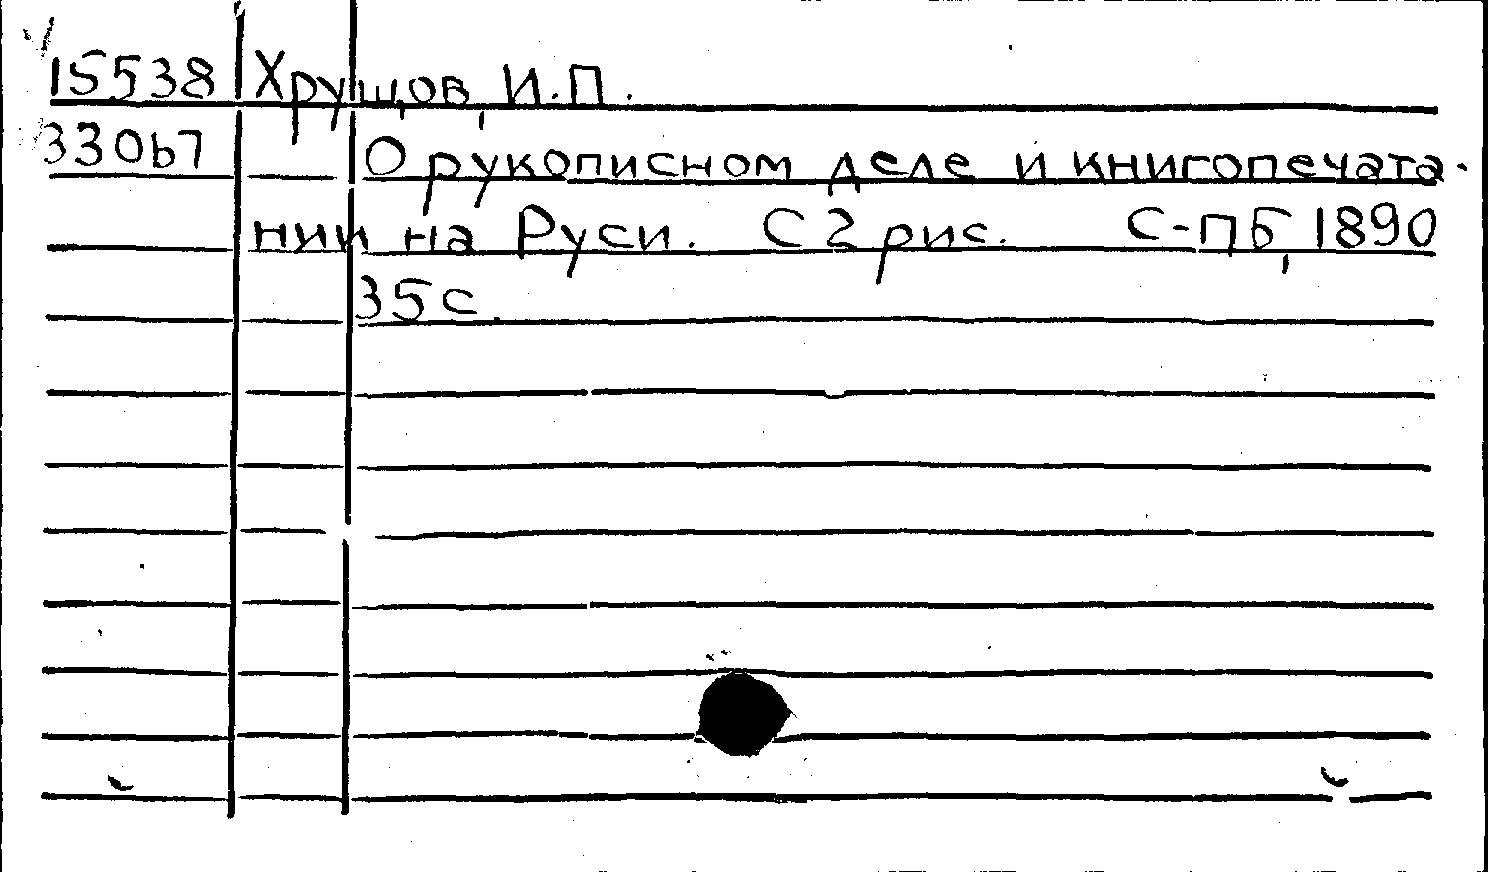 15538 Хрущов, И.П.
33067 О рукописном деле и книгопечата-
нии на Руси. С 2 рис. С-ПБ, 1890
35 с.